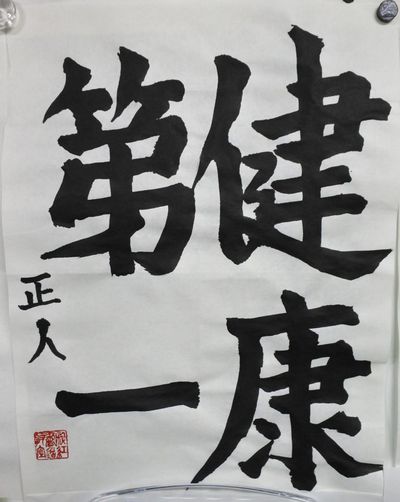 健康
第一
正人